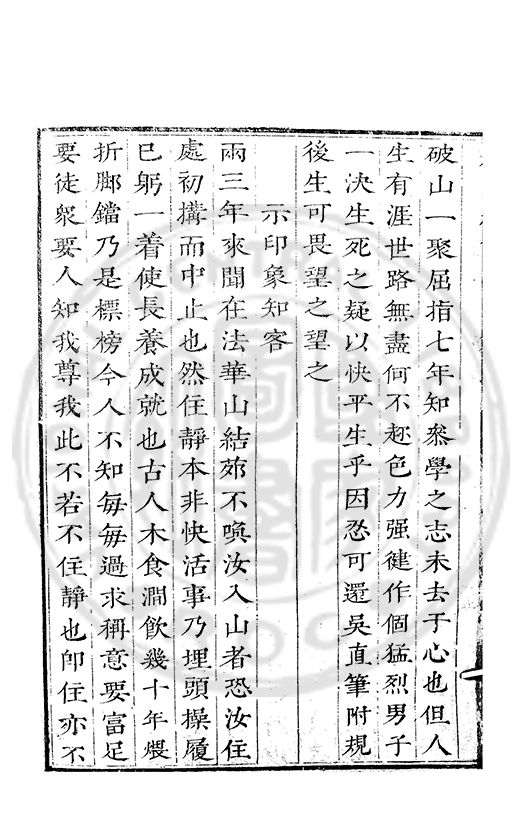 破山一聚屈指七年知叅學之志未去于心也但人
生有涯世路無盡何不趂色力强健作個猛烈男子
一決生死之疑以快平生乎因忍可還吳直筆附規
後生可畏望之望之
示印象知客
兩三年來聞在法華山結茆不喚汝入山者恐汝住
處初搆而中止也然住靜本非快活事乃埋頭操履
已躬一着使長養成就也古人木食澗飲幾十年煨
折脚鐺乃是標榜今人不知每每過求稱意要富足
要徒衆要人知我尊我此不若不住靜也卽住亦不